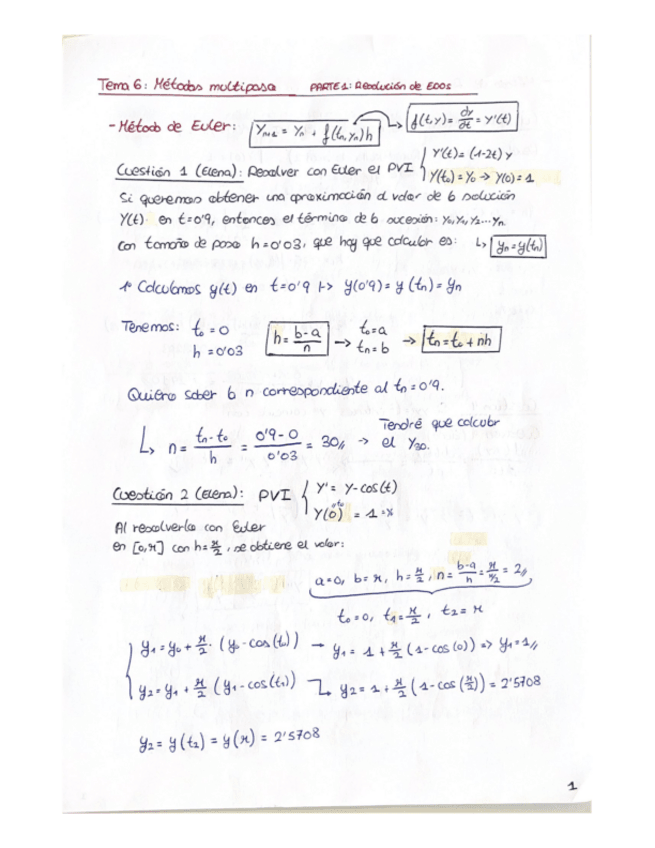 Tema 6: Métodos multipaso PARTE 1: Resolución de EDOs
- Método de Euler: Yn+1 = Yn + f(tn, yn) h → f(t,y) = dy/dt = Y'(t)
Cuestión 1 (Elena): Resolver con Euler el PVI { Y'(t) = (1-2t) y
Y(t0) = Y0 → Y(0) = 1
Si queremos obtener una aproximación al valor de la solución
Y(t) en t=0'9, entonces el término de la sucesión: Y0, Y1, Y2... Yn
con tamaño de paso h=0'03, que hay que calcular es: ↳ yn = y(tn)
1º Calculamos y(t) en t=0'9 ↦ y(0'9) = y(tn) = yn
Tenemos: t0 = 0
h = 0'03
h = (b-a)/n → t0=a
tn=b → tn = t0 + nh
Quiero saber la n correspondiente al tn = 0'9.
↳ n = (tn - t0)/h = (0'9 - 0)/0'03 = 30 // → Tendré que calcular
el Y30.
Cuestión 2 (Elena): PVI { Y' = Y - cos(t)
Y(0) = 1
Al resolverlo con Euler
en [0, π] con h = π/2, se obtiene el valor:
a=0, b=π, h=π/2, n = (b-a)/h = π/(π/2) = 2 //
t0=0, t1 = π/2, t2 = π
y1 = y0 + π/2 · (y0 - cos(t0)) → y1 = 1 + π/2 (1 - cos(0)) => y1 = 1 //
y2 = y1 + π/2 (y1 - cos(t1)) ↳ y2 = 1 + π/2 (1 - cos(π/2)) = 2'5708
y2 = y(t2) = y(π) = 2'5708
1